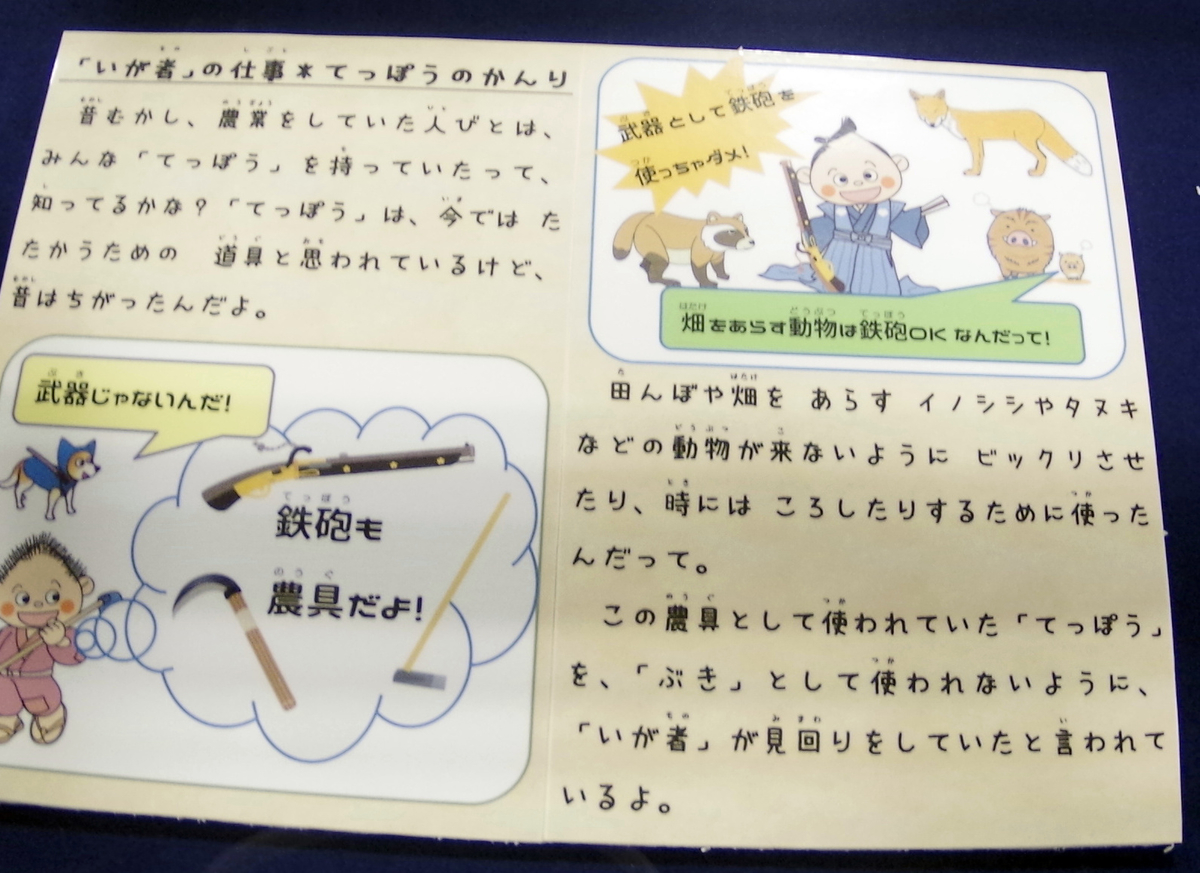 「いが者」の仕事＊てっぽうのかんり
昔むかし、農業をしていた人びとは、
みんな「てっぽう」を持っていたって、
知ってるかな？「てっぽう」は、今では た
たかうための 道具と思われているけど、
昔はちがったんだよ。
武器じゃないんだ！
鉄砲も
農具だよ！
武器として鉄砲を
使っちゃダメ！
畑をあらす動物は鉄砲OK なんだって！
田んぼや畑を あらす イノシシやタヌキ
などの動物が来ないように ビックリさせ
たり、時には ころしたりするために使った
んだって。
この農具として使われていた「てっぽう」
を、「ぶき」として使われないように、
「いが者」が見回りをしていたと言われて
いるよ。